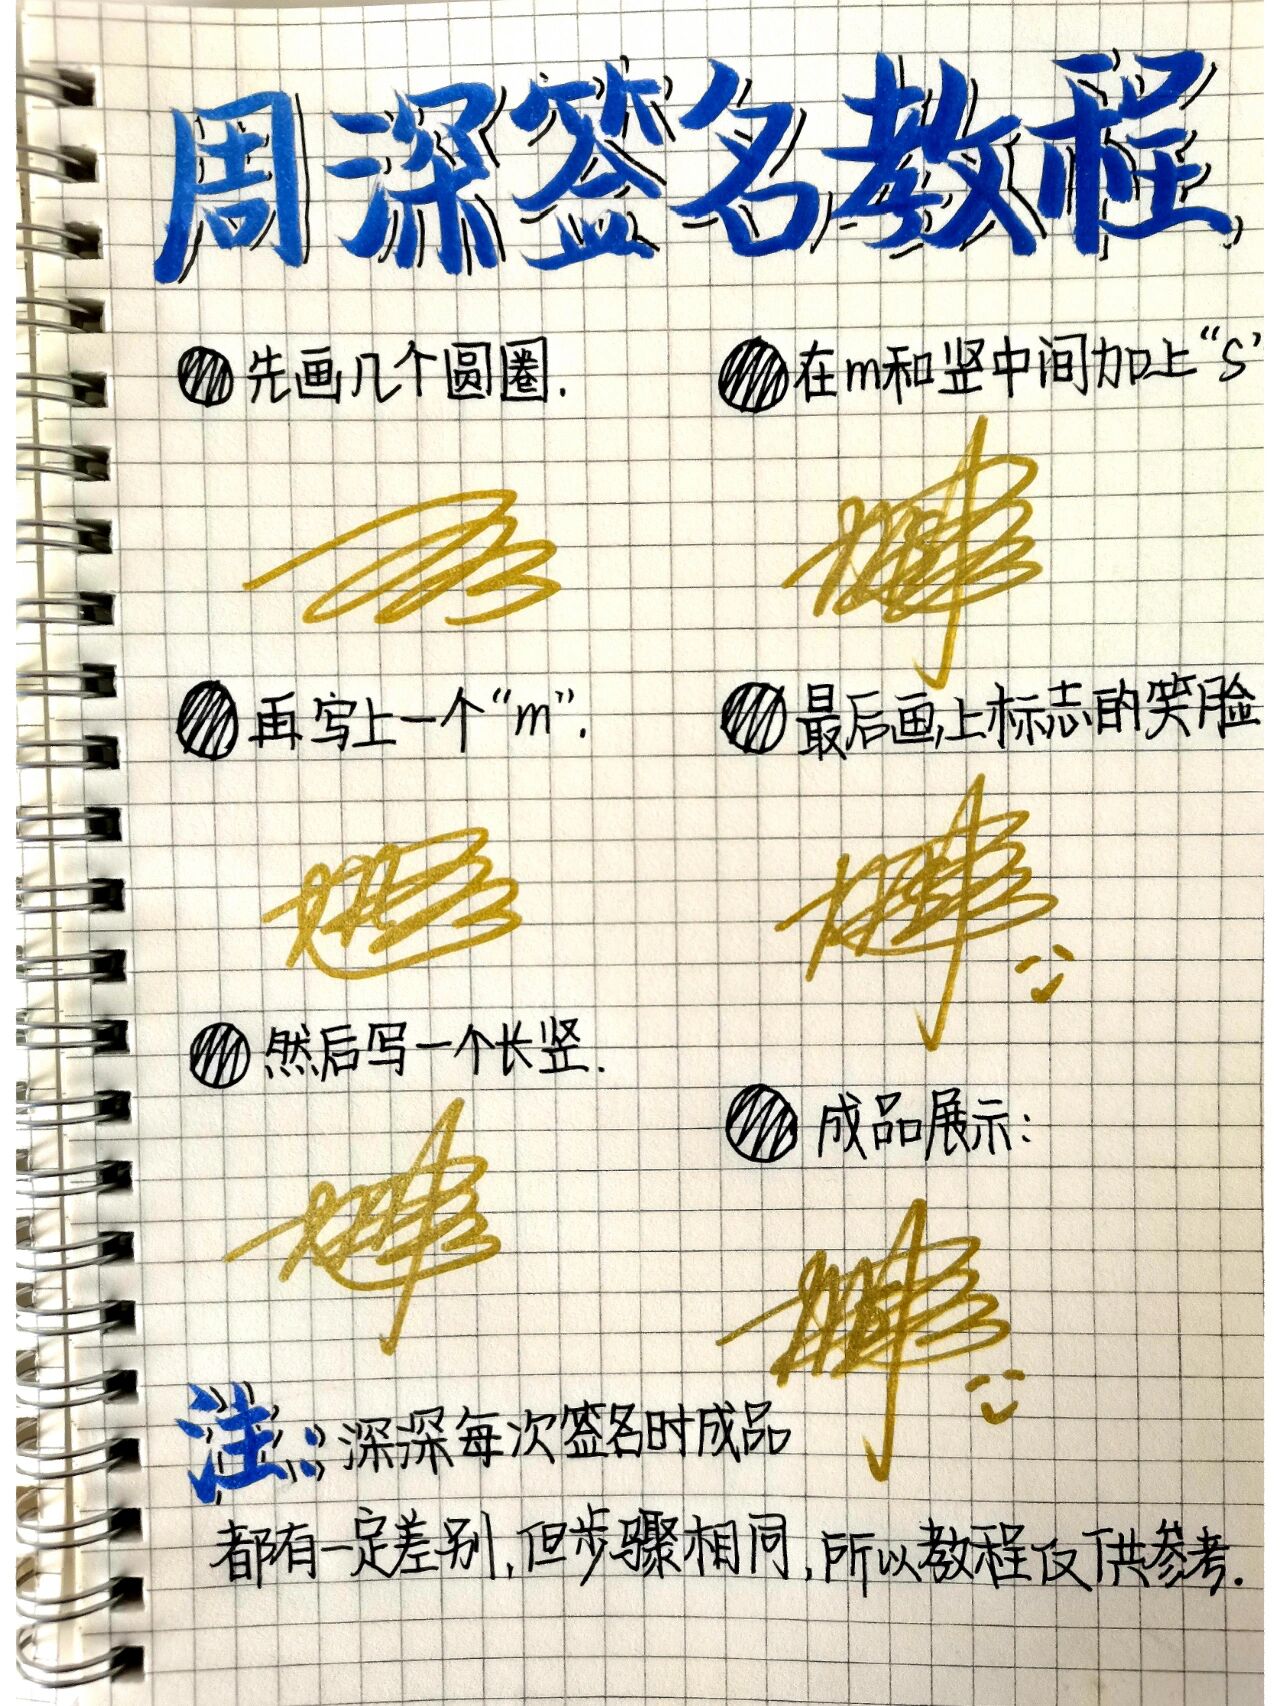 周深签名教程
先画几个圆圈.
再写上一个“m”.
然后写一个长竖.
在m和竖中间加上“S”
最后画上标志的笑脸
成品展示:
注:深深每次签名时成品
都有一定差别,但步骤相同,所以教程仅供参考.